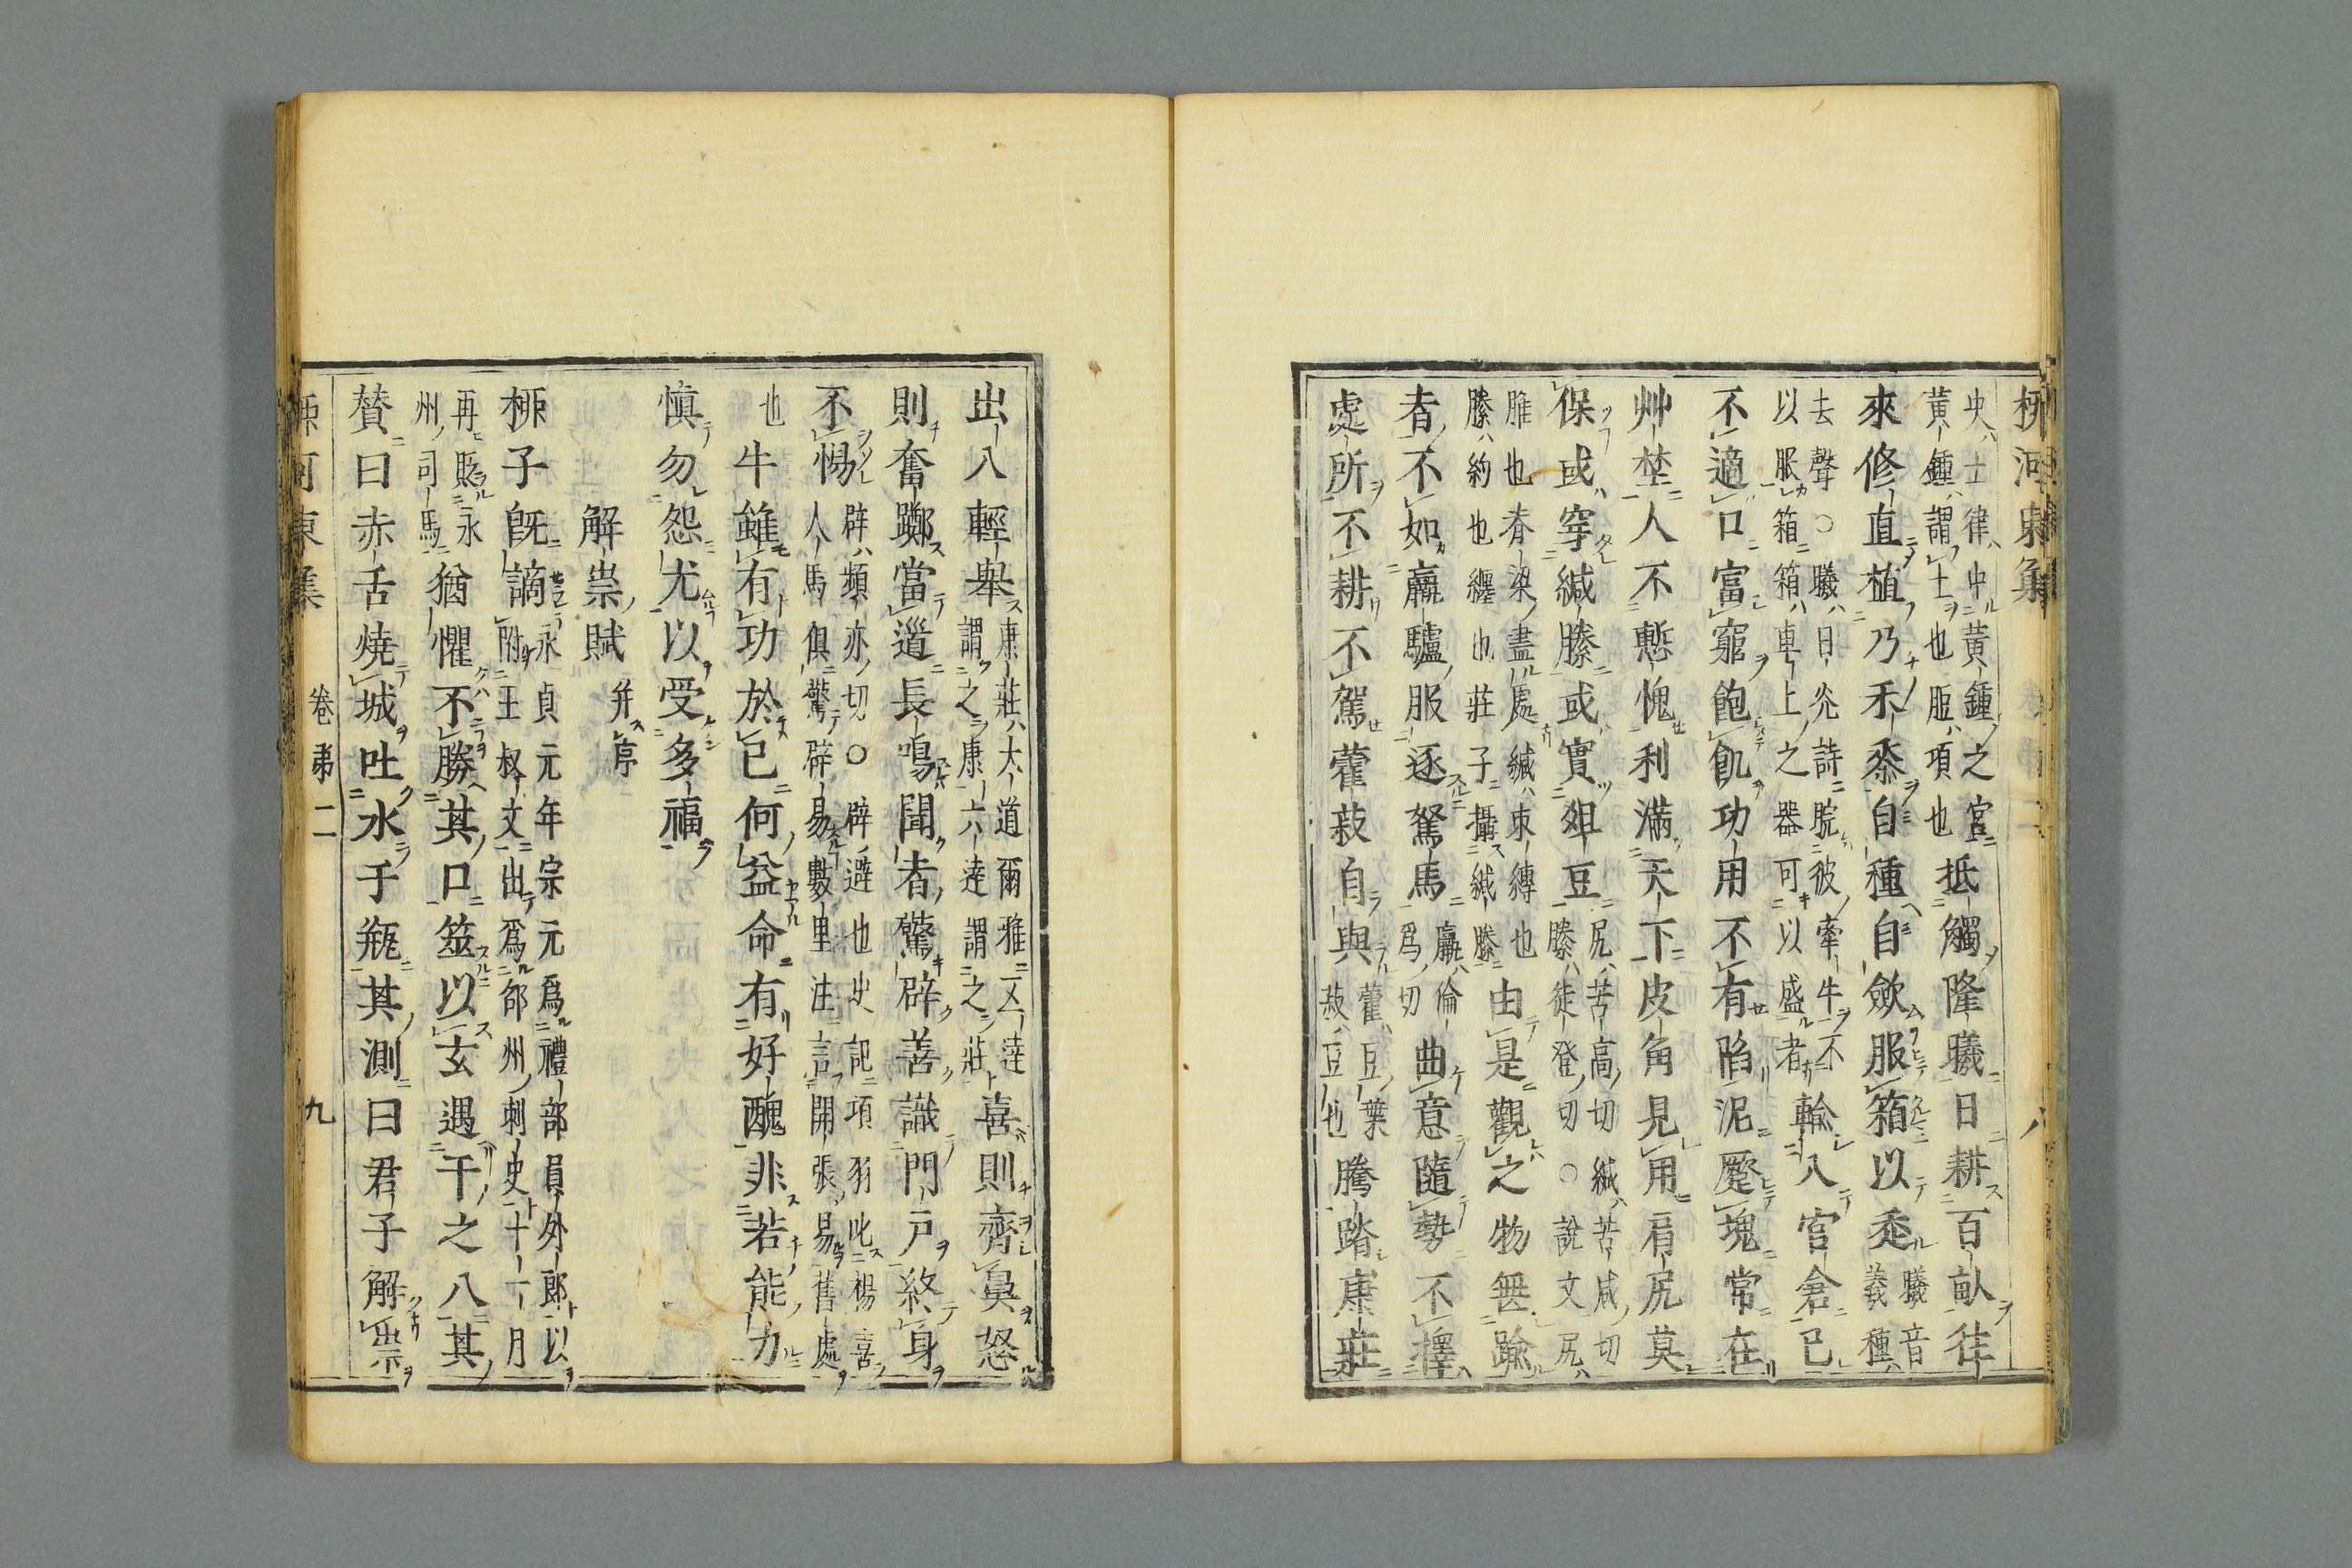 柳河東集 八
史士律中黄鍾之宮
黄鍾謂土也脰項也
抵觸隆曦日耕百畝往
來修直植乃禾黍自種自斂服箱以走
曦音
羲種
去聲○曦日光詩睆彼牽牛不
以服箱箱車上之器可以盛者
輸入官倉已
不適口富窮飽飢功用不有陷泥蹷塊常在
艸埜人不慙愧利滿天下皮角見用肩尻莫
保或穿緘縢或實爼豆
尻苦高切緘苦咸切
縢徒登切○說文尻
脽也脊梁盡處緘束縛也
縢約也纏也莊子攝緘縢
由是觀之物無踰
者不如羸驢服逐駑馬
羸倫
爲切
曲意隨勢不擇
處所不耕不駕藿菽自與
藿豆葉
菽豆也
騰踏康莊
出入輕舉
康莊大道爾雅五逹
謂之康六逹謂之莊
喜則齊鼻怒
則奮躑當道長鳴聞者驚辟善識門戸終身
不惕
辟頻亦切○辟避也史記項羽叱楊喜
人馬俱驚辟易數里注言開張易舊處
也
牛雖有功於已何益命有好醜非若能力
慎勿怨尤以受多福
解祟賦 并序
柳子旣謫
永貞元年宗元爲禮部員外郎以
附王叔文出爲邵州刺史十一月
再貶永
州司馬
猶懼不勝其口筮以玄遇干之八其
贊曰赤舌燒城吐水于瓶其測曰君子解祟
柳河東集 卷第二 九